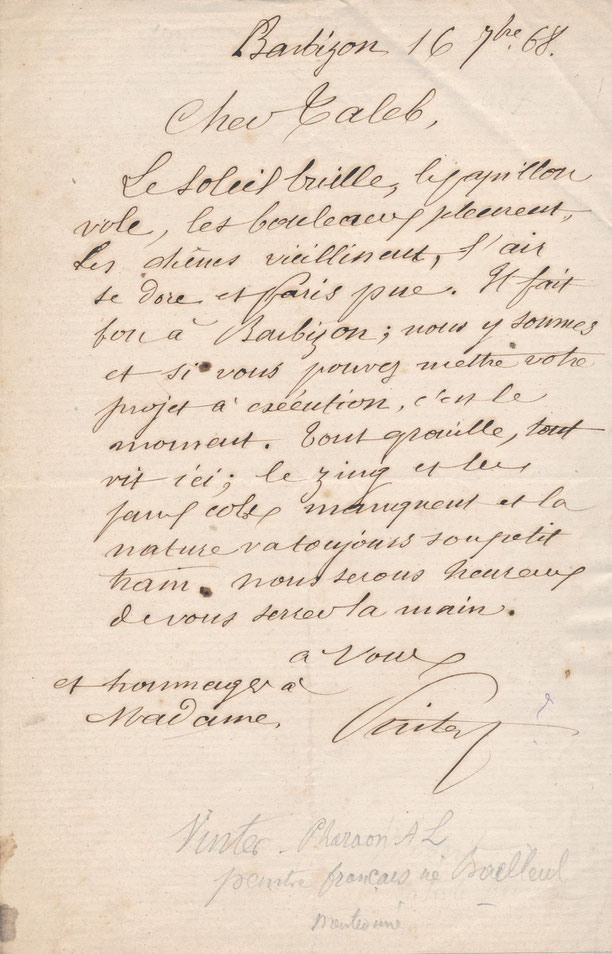 Barbizon 16 7bre 68.
Cher Taleb,
Le soleil brille, le papillon
vole, les bouleaux pleurent,
Les chênes vieillissent, l'air
se dore et Paris pue. Il fait
bon à Barbizon; nous y sommes
et si vous pouvez mettre votre
projet à exécution, c'est le
moment. Tout grouille, tout
vit ici; le zing et les
faux cols manquent et la
nature va toujours son petit
train. nous serons heureux
de vous serrer la main.
a vous
et hommages à
Madame.
Vinter
?
Vinter - Pharaon A L
peintre français né Bailleul